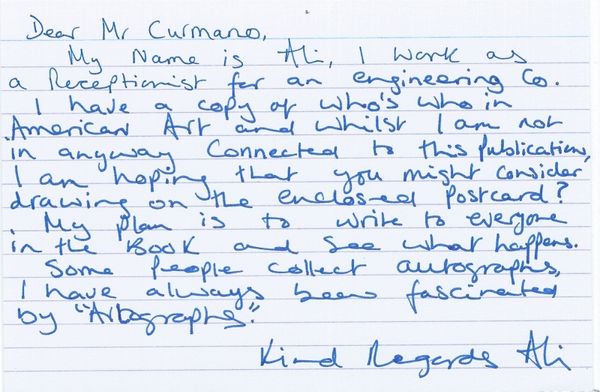 Dear Mr Curmano,
My Name is Ali, I work as
a Receptionist for an engineering Co.
I have a copy of who's who in
American Art and whilst I am not
in anyway Connected to this publication,
I am hoping that you might consider
drawing on the enclosed postcard?
My plan is to write to everyone
in the Book and see what happens.
Some people collect autographs,
I have always been fascinated
by "Artographs".
Kind Regards Ali